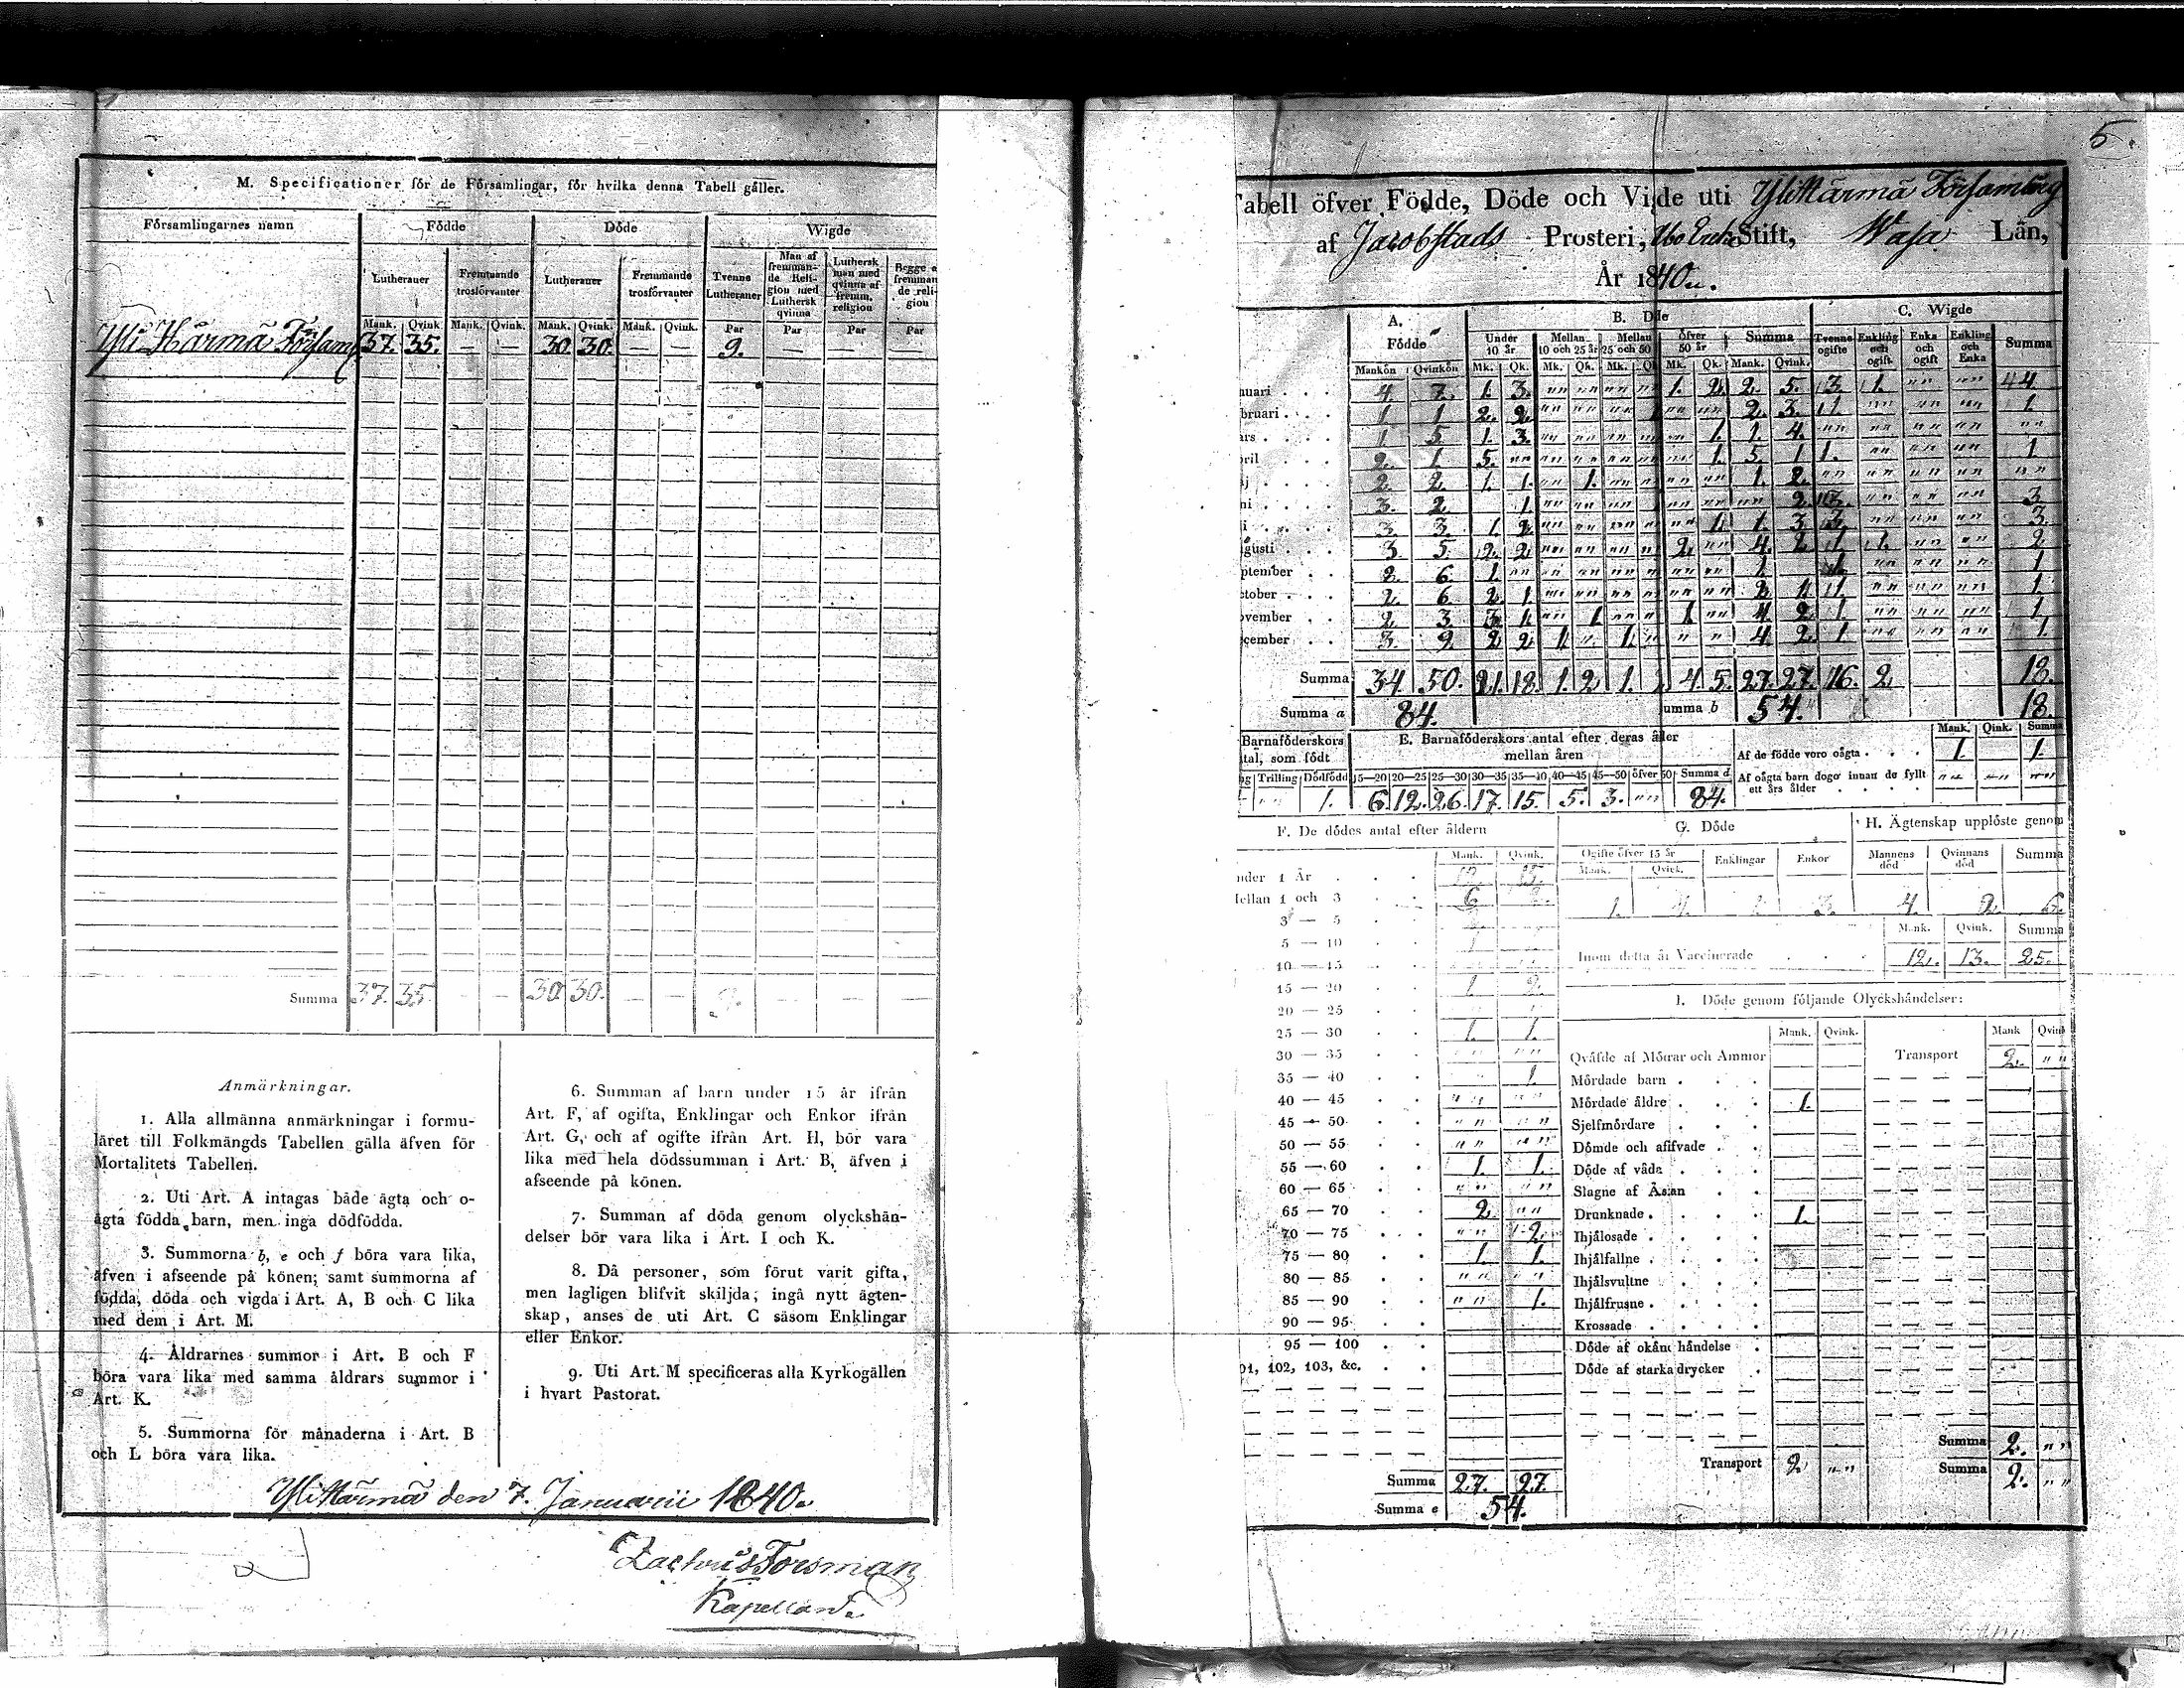 M. Specificationer för de Församlingar, för hvilka denna Tabell gäller.
Församlingarnes namn Födde Döde Wigde
Lutheraner Fremmande trosförvanter Lutheraner Fremmande trosförvanter Tvenne Lutheraner Man af fremmande Religion med Luthersk qvinna Luthersk man med qvinna af fremm. religion Begge a fremman de reli- gion
Mank. Qvink. Mank. Qvink. Mank. Qvink. Mank. Qvink. Par Par Par Par
Yli Härmä Församl 37. 35. — — 30. 30. — — 9. — — —
Summa 37. 35. — — 30. 30. — — 9. — — —
Anmärkningar.
1. Alla allmänna anmärkningar i formu-
läret till Folkmängds Tabellen gälla äfven för
Mortalitets Tabellen.
2. Uti Art. A intagas både ägta och o-
ägta födda barn, men inga dödfödda.
3. Summorna b, e och f böra vara lika,
äfven i afseende på könen; samt summorna af
födda, döda och vigda i Art. A, B och C lika
med dem i Art. M.
4. Åldrarnes summor i Art. B och F
böra vara lika med samma åldrars summor i
Art. K.
5. Summorna för månaderna i Art. B
och L böra vara lika.
6. Summan af barn under 15 år ifrån
Art. F, af ogifta, Enklingar och Enkor ifrån
Art. G, och af ogifte ifrån Art. H, bör vara
lika med hela dödssumman i Art. B, äfven i
afseende på könen.
7. Summan af döda genom olyckshän-
delser bör vara lika i Art. I och K.
8. Då personer, som förut varit gifta,
men lagligen blifvit skiljda, ingå nytt ägten-
skap, anses de uti Art. C såsom Enklingar
eller Enkor.
9. Uti Art. M specificeras alla Kyrkogällen
i hvart Pastorat.
Ylihärmä den 7. Januarii 1840.
Zachris Forsman
Kapellan
5.
Tabell öfver Födde, Döde och Vigde uti Ylihärmä Församling
af Jacobstads Prosteri, Stift, Wasa Län,
År 1840.
A. Födde B. Döde C. Wigde
Under 10 år Mellan 10 och 25 år Mellan 25 och 50 öfver 50 år Summa Tvenne ogifte Enkling och ogift Enka och ogift Enkling och Enka Summa
Mankön Qvinkön Mk. Qk. Mk. Qk. Mk. Qk. Mk. Qk. Mank. Qvink.
nuari 4. 7. 1. 3. 1. 2. 2. 5. 3. 1.
bruari 1 1 2. 2. 2. 3. 1. 1.
ars 1 5. 1. 3. 1. 1. 4.
pril 2. 1. 5. 1. 5. 1 1. 1
j 2. 2. 1. 1. 1. 1. 2.
ni 3. 2. 1. 2. 3. 3
li 3. 3. 1. 2. 1. 1. 3. 3. 3.
gusti 3. 5. 2. 2. 2. 4. 2. 1 1. 2
ptember 2. 6. 1. 1. 1. 1
ctober 2. 6. 2. 1 2. 1. 1. 1.
ovember 2. 3. 3. 1. 1. 1. 4. 2. 1. 1
cember 3. 9. 2. 2. 1. 1. 4. 2. 1 1.
Summa 34. 50. 21. 18. 1. 2. 1. 4. 5. 27. 27. 16. 2. 18.
Summa a 84. umma b 54. 18.
Barnaföderskors tal, som födt E. Barnaföderskors antal efter deras ålder mellan åren
Mank. Qink. Summa
Af de födde voro oägta 1. 1.
Af oägta barn dogo innan de fyllt ett års ålder
Trilling Dödfödd 15—20 20—25 25—30 30—35 35—40 40—45 45—50 öfver 50 Summa d
1. 6. 12. 26. 17. 15. 5. 3. 84.
F. De dödes antal efter åldern G. Döde H. Ägtenskap upplöste genom
Mank. Qvink. Ogifte öfver 15 år Enklingar Enkor Mannens död Qvinnans död Summa
Mank. Qvink.
nder 1 År
ellan 1 och 3 6.
1. 4. 3. 4. 2. 6.
3 — 5
5 — 10
10 — 15
15 — 20 1. 2.
20 — 25
25 — 30 1. 1.
30 — 35
35 — 40 1.
40 — 45
45 — 50
50 — 55
55 — 60 1. 1.
60 — 65
65 — 70 2.
70 — 75 2.
75 — 80 1. 1.
80 — 85
85 — 90 1.
90 — 95
95 — 100
01, 102, 103, &c.
Summa 27. 27.
Summa e 54.
Mank. Qvink. Summa
Inom detta år Vaccinerade 12. 13. 25.
I. Döde genom följande Olyckshändelser:
Mank. Qvink. Mank Qvink
Qväfde af Mödrar och Ammor Transport 2.
Mördade barn
Mördade äldre 1.
Sjelfmördare
Dömde och aflifvade
Döde af våda
Slagne af Åskan
Drunknade 1.
Ihjälosade
Ihjälfallne
Ihjälsvultne
Ihjälfrusne
Krossade
Döde af okänd händelse
Döde af starka drycker
Summa 2.
Transport 2 Summa 2.